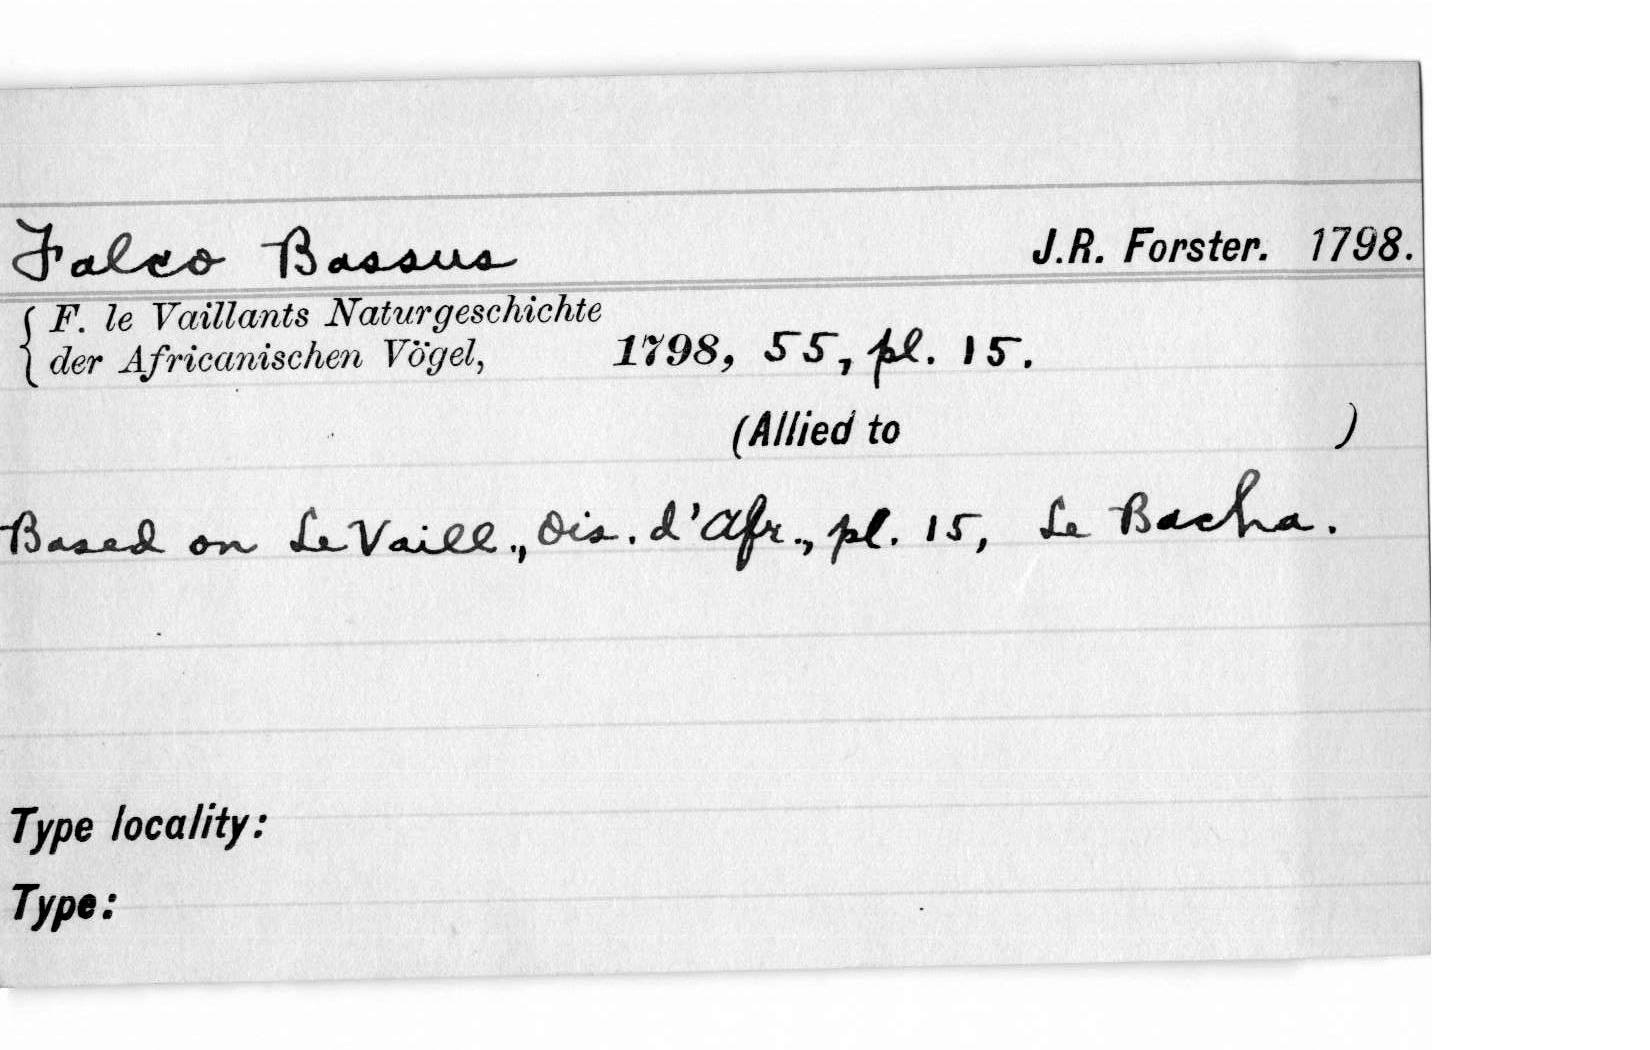 Falco Bassus J.R. Forster. 1798.
{ F. le Vaillants Naturgeschichte
der Africanischen Vögel, 1798, 55, pl. 15.
(Allied to )
Based on LeVaill., Ois. d'Afr., pl. 15, Le Bacha.
Type locality:
Type: